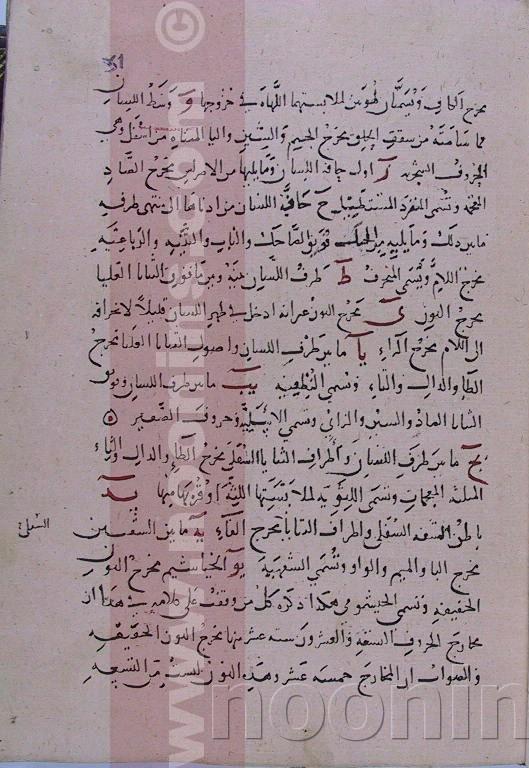 مخرج الكاف وتسمَّيان لهويين لملابستهما اللَّهاة في خروجها و وَسَط اللسان
مما سَامَتَهُ من سقف الحلق مخرج الجيم والشين واليا المثناة من اسفل وهي
الحروف الشجرية ز اول حافة اللسان وما يليها من الاضراس مخرج الضاد
المعجمة وتسمى المنفرد ح حَافَة اللسان من ادناها الى منتهى طرفه
فما بين ذلك وما يليه من الحنك فويق الضاحك والناب والثنيه والرباعيه
مخرج اللام وتُسَمّى المنحرف ط طرف اللسان وبين ما فويق الثنايا العليا
مخرج النون ي مخرج النون غير انه ادخل في ظهر اللسان قليلاً لانحرافه
الى اللام مخرج الراء يا ما بين طرف اللسان واصول الثنايا العليا مخرج
الطا والدال والتاء وتسمى النطعيه يب ما بين طرف اللسان وفويق
الثنايا الصاد والسين والزاي وتسمى الاسليه وحروف الصفير ۞
يج ما بين طرف اللسان واطراف الثنايا السفلى مخرج الظاء والذال والثاء
المثلثه المعجمات وتسمى اللثويه لملابستها اللِّثَه او قربها منها يد
باطن الشفه السفلى واطراف الثنايا مخرج الفاء يه ما بين الشفتين
السفلى
مخرج البا والميم والواو وتُسمى الشفهية يو الخياشيم مخرج النون
الخفيفه وتسمى الخيشومي هكذا ذكره كل من وقفت على كلامه في هذا ان
مخارج الحروف التسعه والعشرون سته عشر منها مخرج النون الخفيفه
والصواب ان المخارج خمسه عشر وهذه النون ليست من التسعه
noonin
www.noonins.com ©